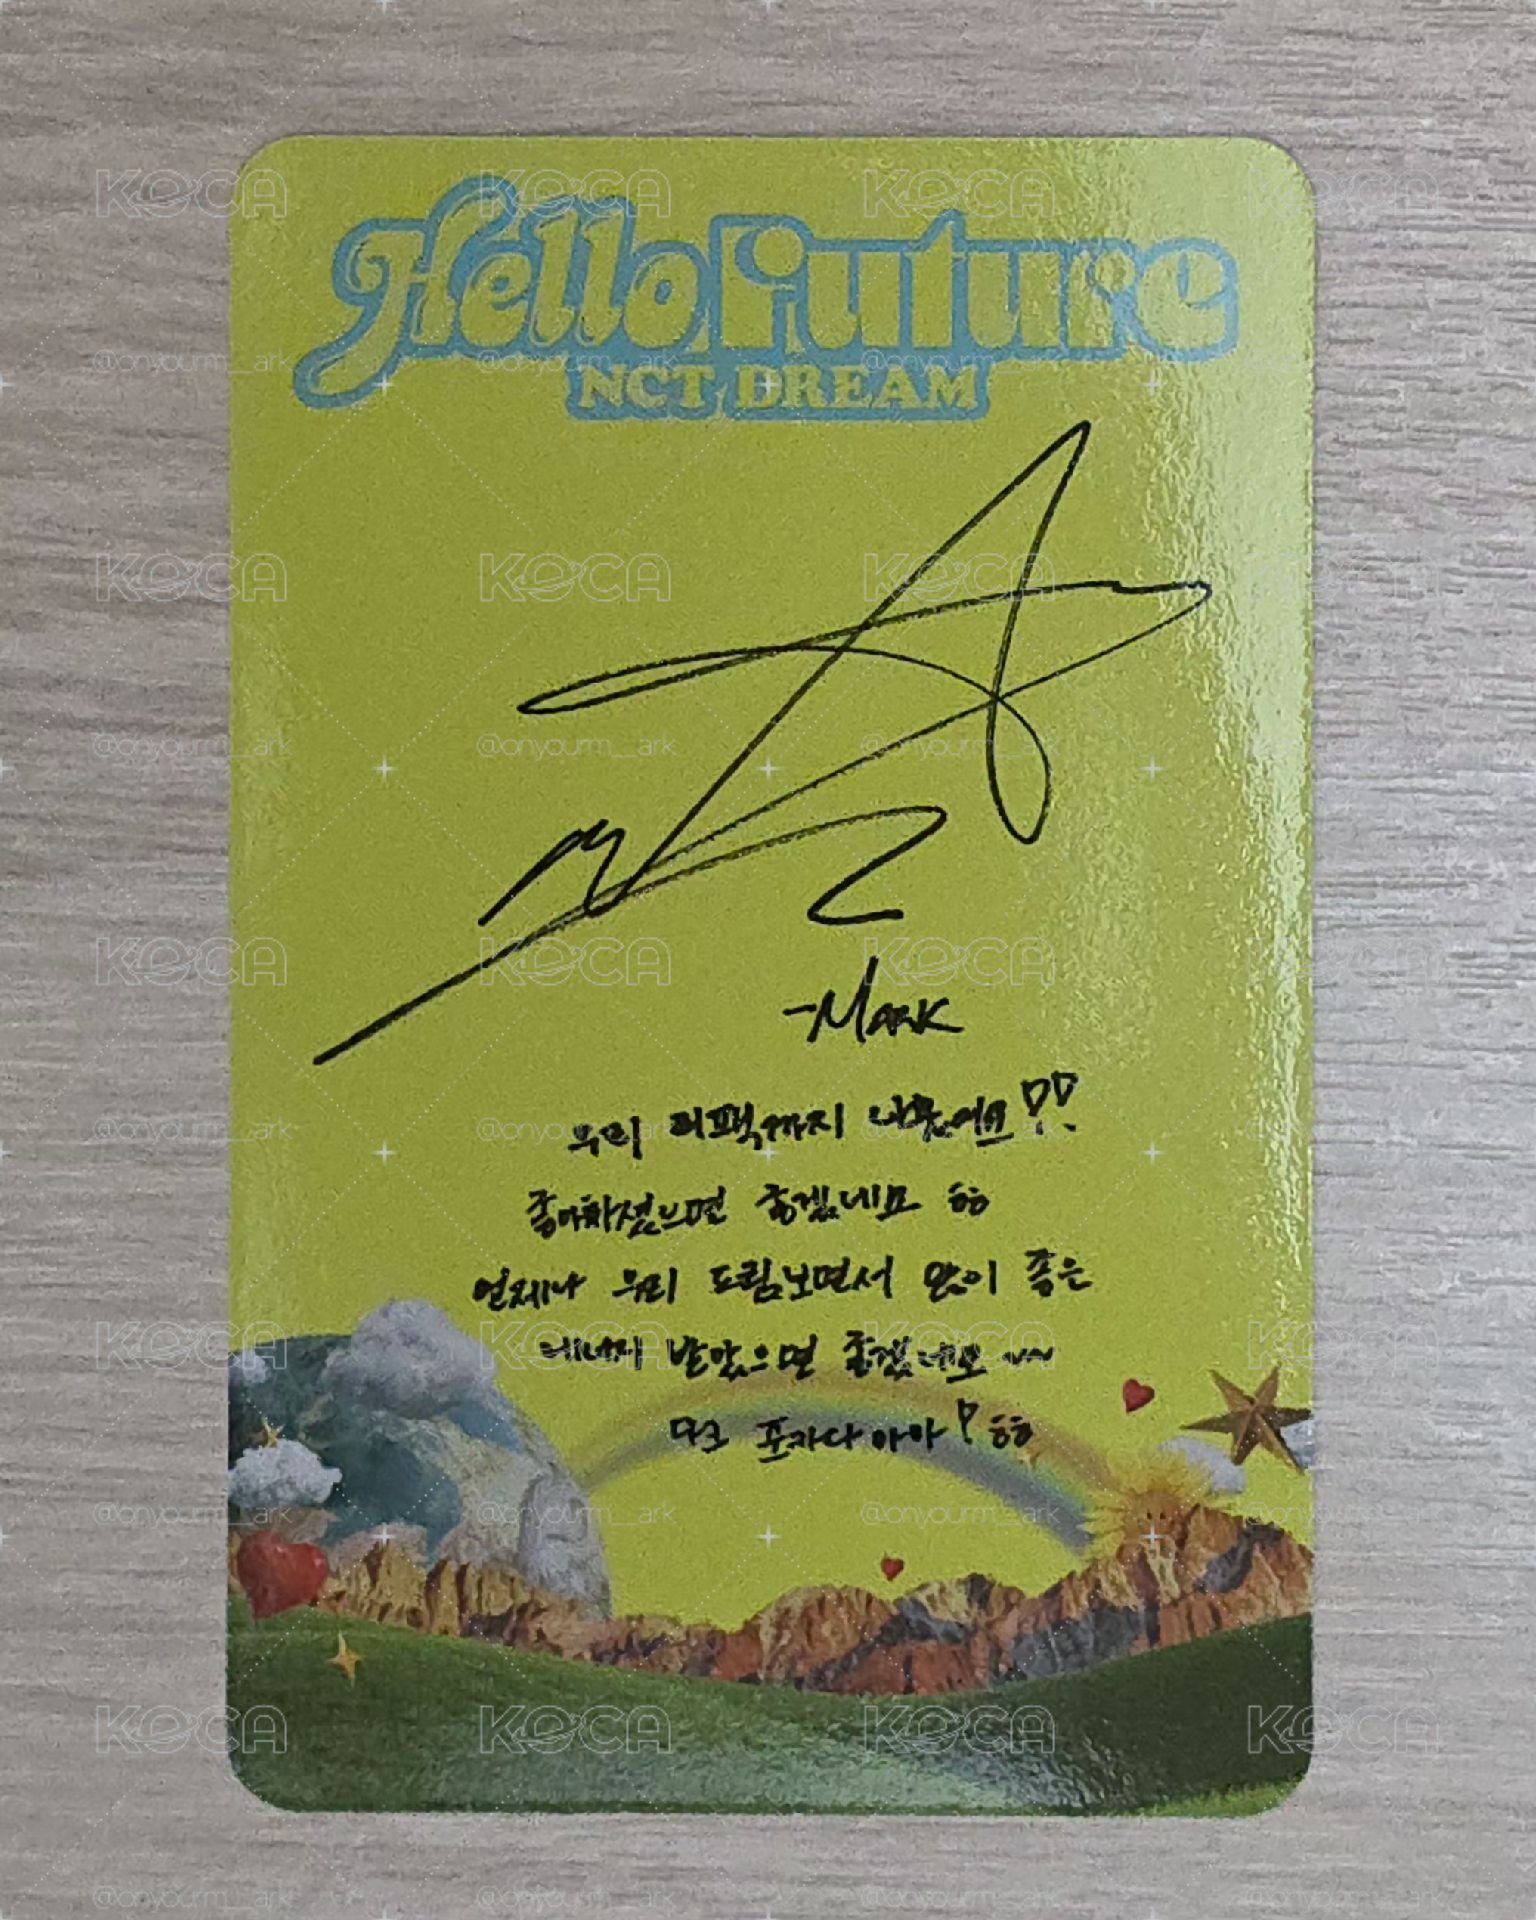 Hello Future
NCT DREAM
-MARK
우리 리팩까지 나왔어요!!
좋아하셨으면 좋겠네요 ㅎㅎ
언제나 우리 드림보면서 많이 좋은
에너지 받았으면 좋겠네요 ~~
마크 포카다아아! ㅎㅎ
KOCA
@onyourm__ark